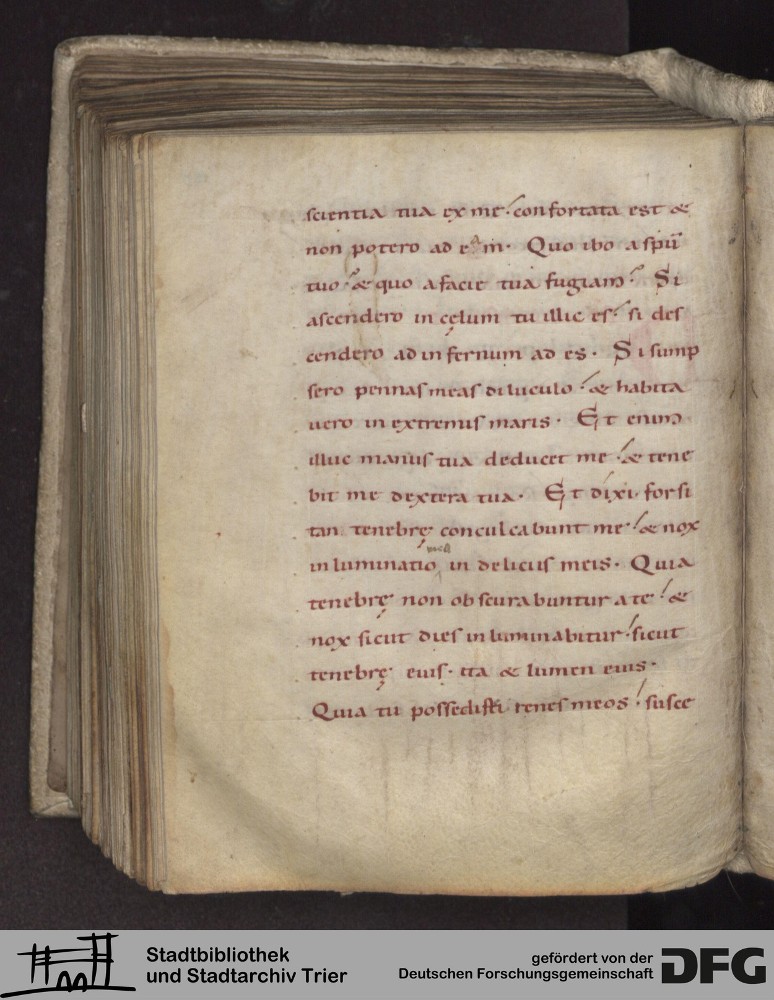 scientia tua ex me· confortata est &
non potero ad eam· Quo ibo a spū
tuo· & quo a facie tua fugiam· Si
ascendero in cęlum tu illic es· si des
cendero ad infernum ad es· Si sump
sero pennas meas diluculo· & habita
uero in extremis maris· Et enim
illuc manus tua deducet me· & tene
bit me dextera tua· Et dixi· forsi
tan tenebrę conculcabunt me· & nox
mea
inluminatio in deliciis meis· Quia
tenebrę non obscurabuntur a te· &
nox sicut dies inluminabitur· sicut
tenebrę eius· ita & lumen eius·
Quia tu possedisti renes meos· susce
Stadtbibliothek
und Stadtarchiv Trier
gefördert von der
Deutschen Forschungsgemeinschaft
DFG